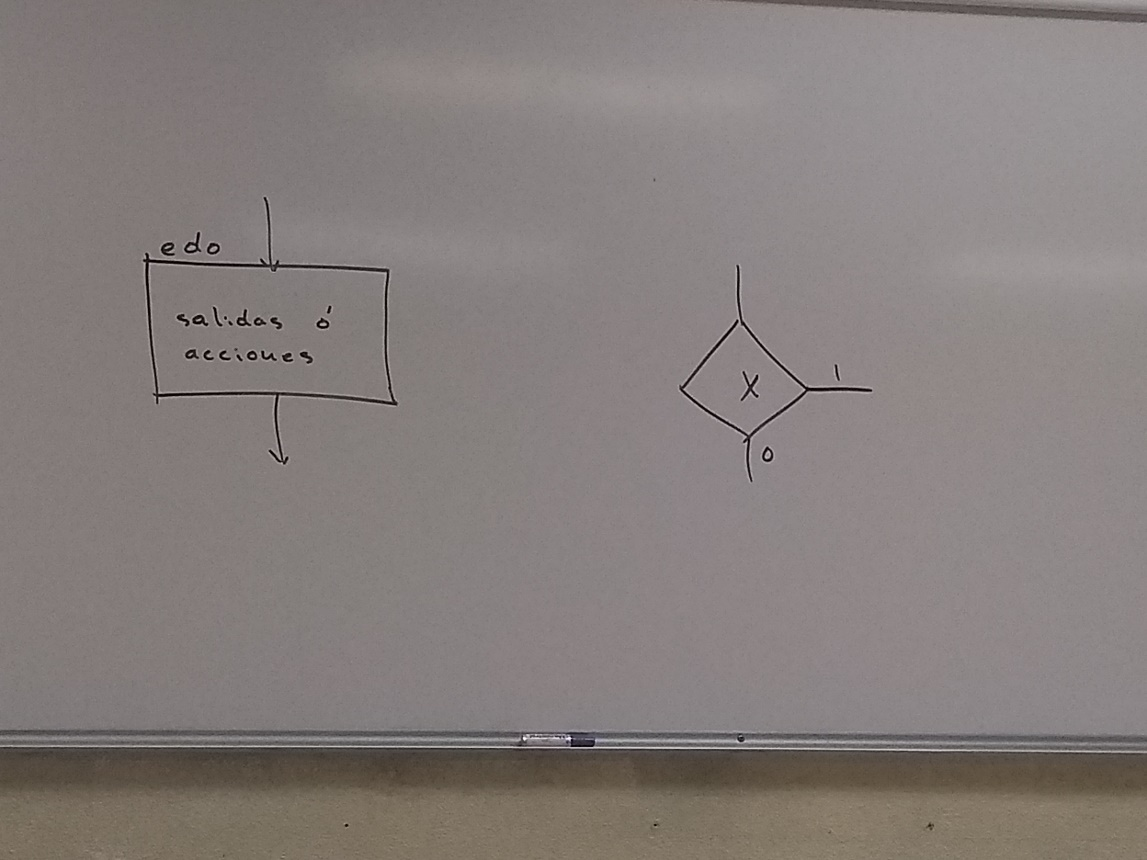 edo
salidas ó
acciones
X
1
0